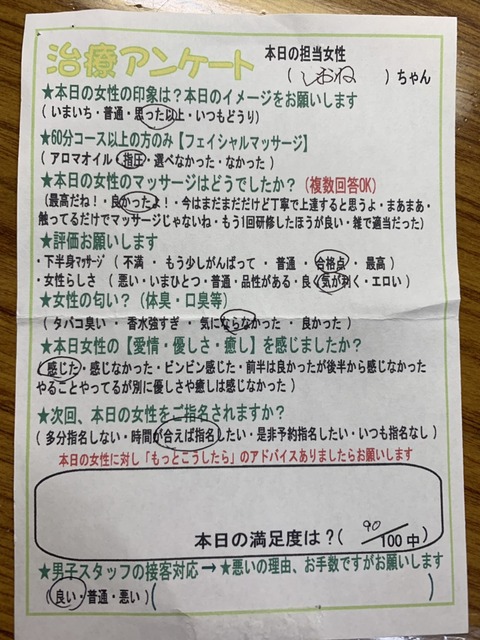 治療アンケート
本日の担当女性
(しおね)ちゃん
★本日の女性の印象は?本日のイメージをお願いします
(いまいち・普通・思った以上・いつもどうり)
★60分コース以上の方のみ【フェイシャルマッサージ】
(アロマオイル・指圧・選べなかった・なかった)
★本日の女性のマッサージはどうでしたか?(複数回答OK)
(最高だね!・良かったよ!・今はまだまだだけど丁寧で上達すると思うよ・まあまあ・
触ってるだけでマッサージじゃないね・もう1回研修したほうが良い・雑で適当だった)
★評価お願いします
・下半身マッサージ(不満・もう少しがんばって・普通・合格点・最高)
・女性らしさ(悪い・いまひとつ・普通・品性がある・良く気が利く・エロい)
★女性の匂い?(体臭・口臭等)
(タバコ臭い・香水強すぎ・気にならなかった・良かった)
★本日女性の【愛情・優しさ・癒し】を感じましたか?
(感じた・感じなかった・ビンビン感じた・前半は良かったが後半から感じなかった
やることやってるが別に優しさや癒しは感じなかった)
★次回、本日の女性をご指名されますか?
(多分指名しない・時間が合えば指名したい・是非予約指名したい・いつも指名なし)
本日の女性に対し「もっとこうしたら」のアドバイスありましたらお願いします
本日の満足度は?(90/100中)
★男子スタッフの接客対応→★悪いの理由、お手数ですがお願いします
(良い・普通・悪い)( )